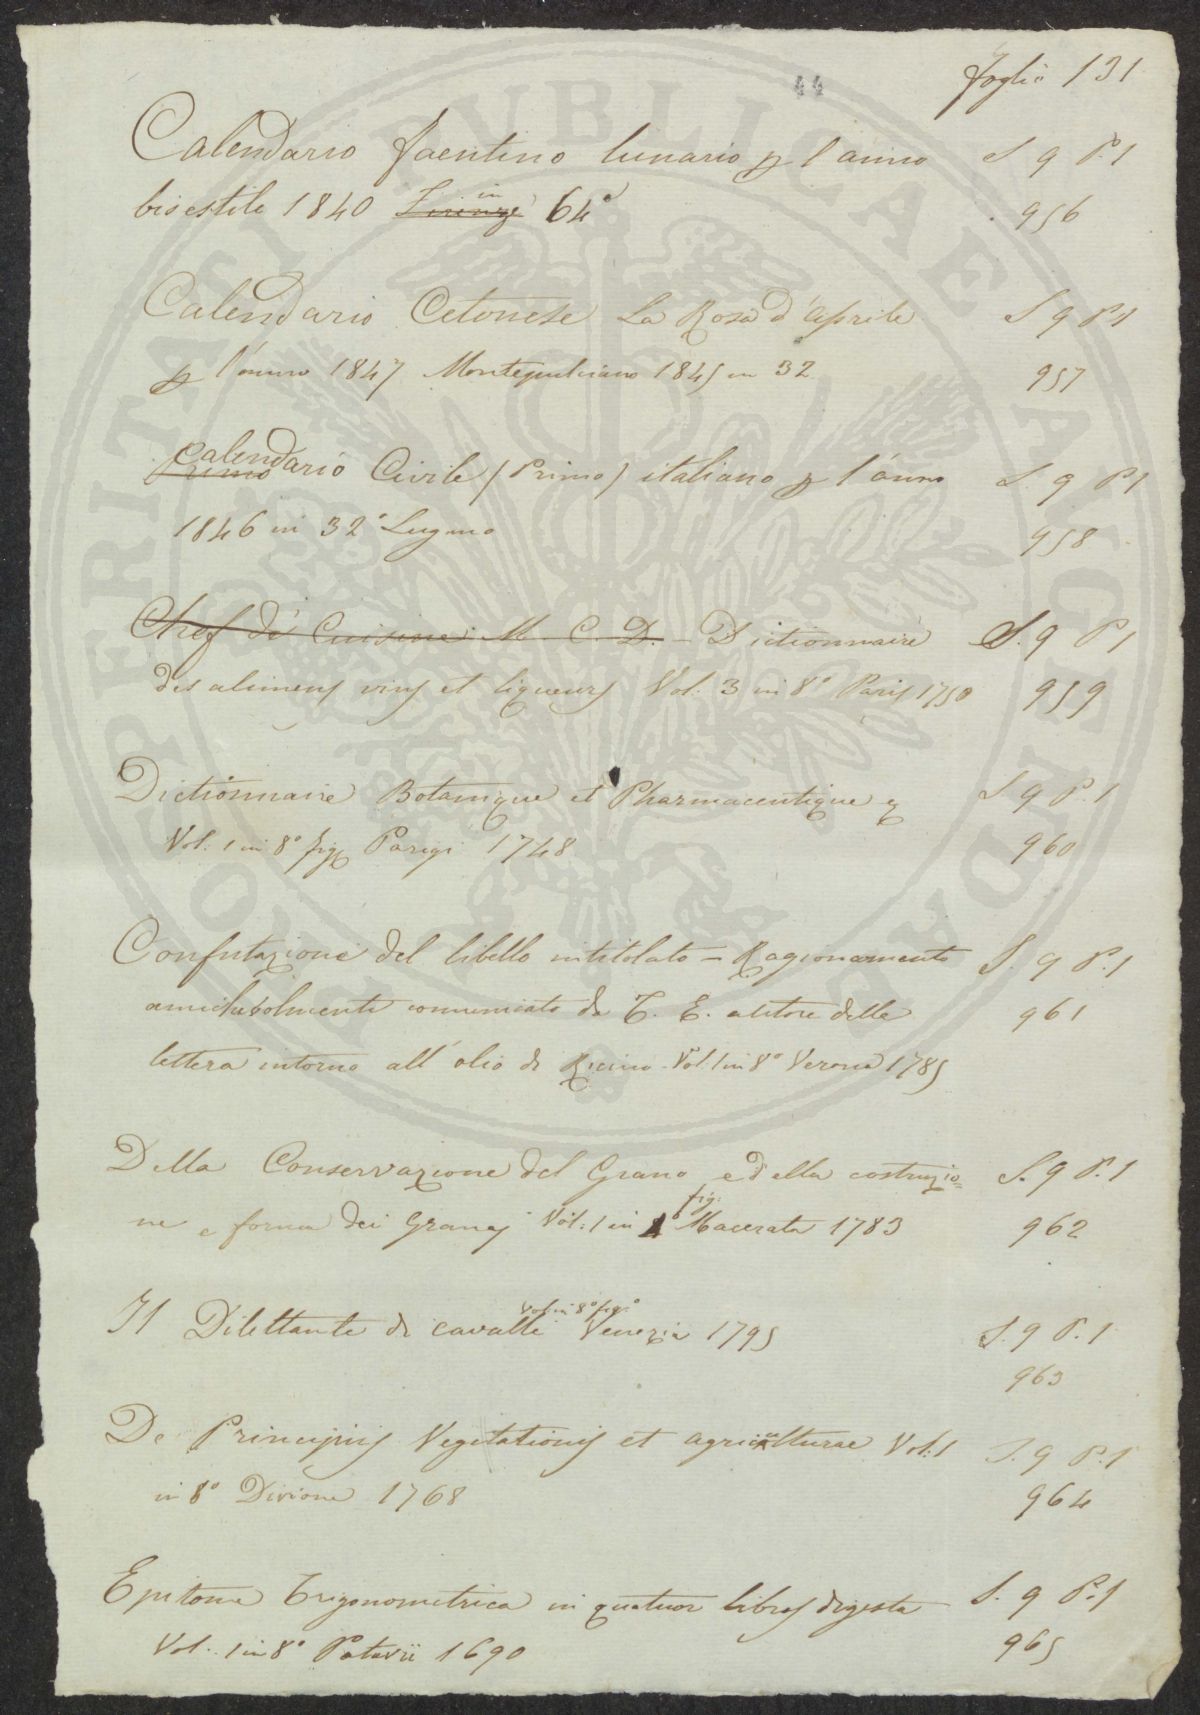 Foglio 131
44
Calendario faentino lunario p l'anno S 9 P. 1
bisestile 1840 Firenze in 64° 956
Calendario Cetonese La Rosa d'Aprile S 9 P 1
p l'anno 1847 Montepulciano 1845 in 32 957
Primo Calendario Civile (Primo) italiano p l'anno S. 9 P 1
1846 in 32° Lugano 958
Chef de Cuisine M. C. D. Dictionnaire S. 9 P 1
des alimens vins et liqueurs Vol. 3 in 8° Paris 1750 959
Dictionnaire Botanique et Pharmaceutique S 9 P. 1
Vol: 1 in 8° fig Parigi 1748 960
Confutazione del libello intitolato = Ragionamento S. 9 P. 1
amichevolmente comunicato da T. E. autore della 961
lettera intorno all'olio di Ricino Vol: 1 in 8° Verona 1785
Della Conservazione del Grano e della costruzio= S. 9 P. 1
ne e forma dei Granaj Vol: 1 in 4° fig: Macerata 1783 962
Il Dilettante di cavalli Vol. in 8° fig:° Venezia 1795 S. 9 P. 1
963
De Principiis Vegetationis et agriculturae Vol: 1 S. 9 P. 1
in 8° Divione 1768 964
Epitome Trigonometrica in quatuor libros digesta S. 9 P. 1
Vol: 1 in 8° Patavii 1690 965
PROSPERITATI PUBLICAE AUGENDAE